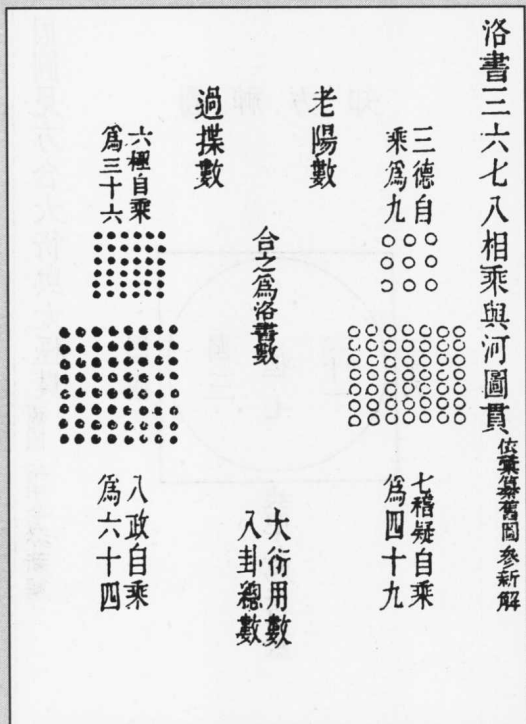 洛書三六七八相乘與河圖貫
依彙纂舊圖參新解
三德自
乘爲九
七稽疑自乘
爲四十九
老陽數
合之爲洛書數
大衍用數
八卦總數
過揲數
六極自乘
爲三十六
八政自乘
爲六十四